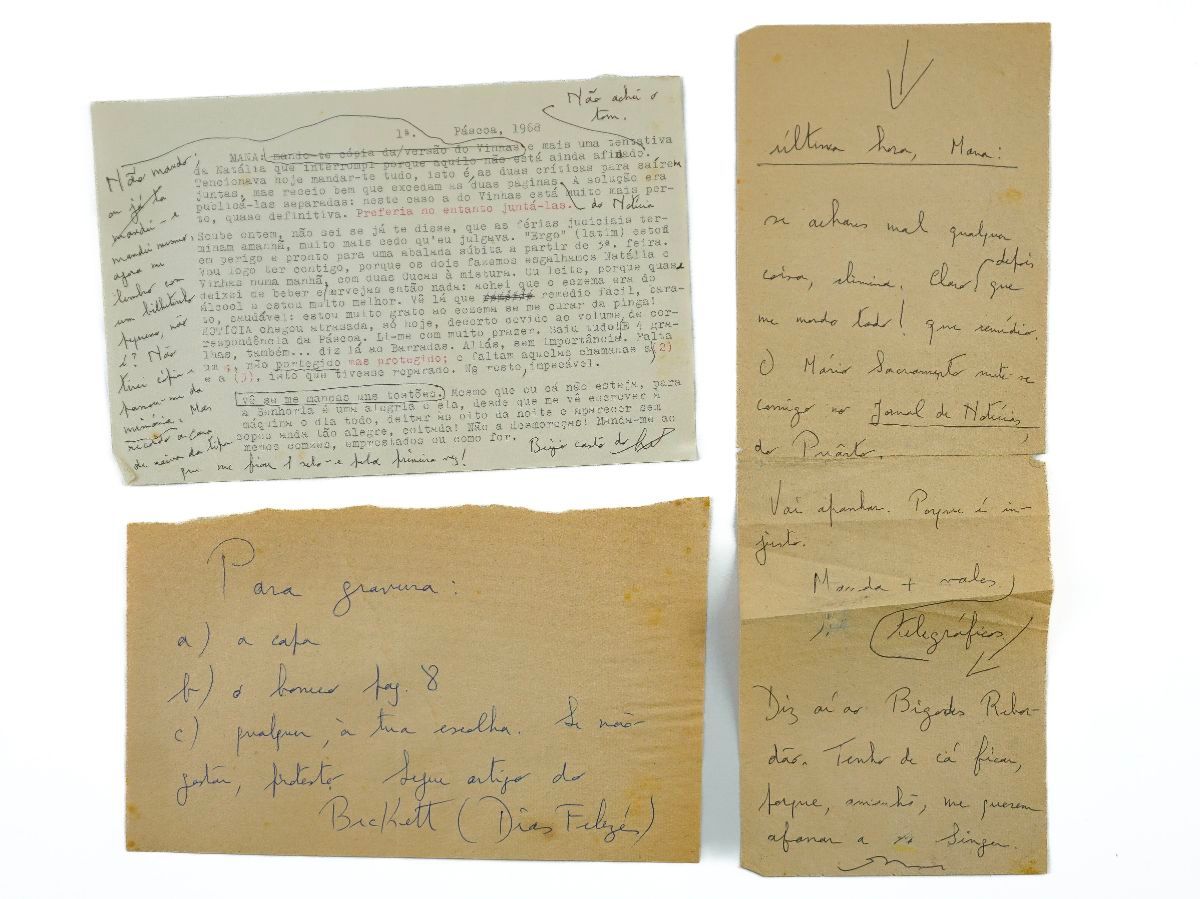 Não achei o
tom.
1ª. Páscoa, 1968
MANA: mando-te cópia da/versão do Vinhas e mais uma tentativa
da Natália que interrompi porque aquilo não está ainda afinado.
Tencionava hoje mandar-te tudo, isto é, as duas críticas para saírem
juntas, mas receio bem que excedam as duas páginas. A solução era
publicá-las separadas: neste caso a do Vinhas está muito mais per-
to, quase definitiva. Preferia no entanto juntá-las. do Notícia
Soube ontem, não sei se já te disse, que as férias judiciais ter-
minam amanhã, muito mais cedo qu'eu julgava. "Ergo" (latim) estou
em perigo e pronto para uma abalada súbita a partir de 3ª. feira.
Vou logo ter contigo, porque os dois fazemos esgalhamos Natália e
Vinhas numa manhã, com duas Cucas à mistura. Ou leite, porque quase
deixei de beber cervejas então nada: achei que o eczema era do
álcool e estou muito melhor. Vê lá que remédio fácil, bara-
to, saudável: estou muito grato ao eczema se me curar da pinga!
NOTÍCIA chegou atrasada, só hoje, decerto devido ao volume da cor-
respondência da Páscoa. Li-me com muito prazer. Saiu tudo! E 4 gra-
lhas, também... diz lá ao Barradas. Aliás, sem importância. Falta
um s, não portegido mas protegido; e faltam aquelas chamadas a (2)
e a (3), isto que tivesse reparado. No resto, impecável.
vê se me mandas uns tostões. Mesmo que eu cá não esteja, para
a Senhoria é uma alegria e ela, desde que me vê escrever à
máquina o dia todo, deitar às oito da noite e aparecer sem
copos anda tão alegre, coitada! Não a desmoreças! Manda-me ao
menos comkxs, emprestados ou como for.
Beijo casto do
Não mando,
ou já ta
mandei - e
mandei mesmo,
agora me
lembro com
um bilhetinho
pequeno, não
é? Não
tirei cópia -
passou-m da
memória. Mas
recordo a cara
de raiva da tipa
que me fiou 1 selo - e pela primeira vez!
Para gravura:
a) a capa
b) o boneco pag. 8
c) qualquer, à tua escolha. Se não
gostar, protesto. Segue artigo do
Beckett (Dias Felizes)
última hora, Mana:
se achares mal qualquer
coisa, elimina. Claro depois que
me mando todo! que remédio.
O Mário Sacramento mete-se
comigo no Jornal de Notícias,
do Puârto.
Vai apanhar. Porque é in-
justo.
Manda + vales
telegráficos.
Diz aí ao Bigodes Rebor-
dão. Tenho de cá ficar,
porque, amanhã, me querem
afanar a Singer.